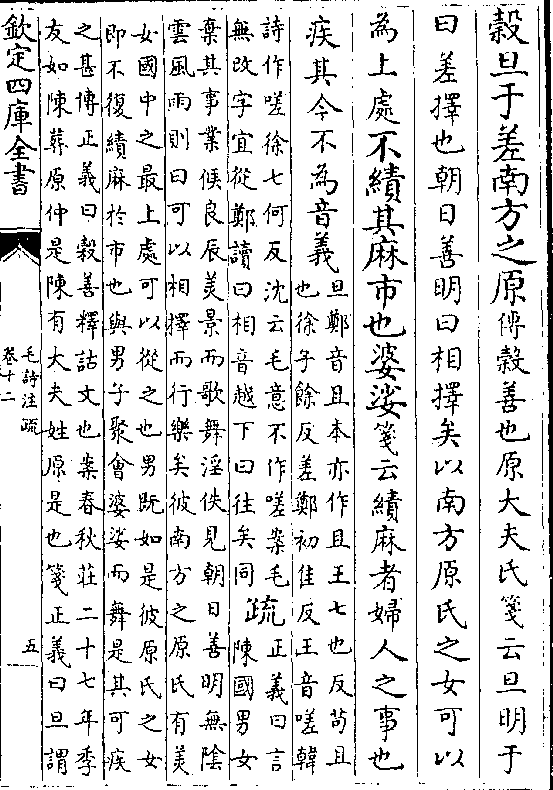 穀旦于差南方之原傳穀善也原大夫氏箋云旦明于
曰差擇也朝日善明曰相擇矣以南方原氏之女可以
為上處不績其麻市也婆娑箋云績麻者婦人之事也
疾其今不為音義旦鄭音旦本亦作且王七也反苟且
也徐子餘反差鄭初佳反王音嗟韓
詩作嗟徐七何反沈云毛意不作嗟案毛
無改字宜從鄭讀曰相音越下曰往矣同
疏正義曰言
陳國男女
棄其事業候良辰美景而歌舞淫佚見朝日善明無陰
雲風雨則曰可以相擇而行樂矣彼南方之原氏有美
女國中之最上處可以從之也男既如是彼原氏之女
即不復績麻於市也與男子聚會婆娑而舞是其可疾
之甚傳正義曰穀善釋詁文也案春秋莊二十七年季
友如陳葬原仲是陳有大夫姓原是也箋正義曰旦謂
欽定四庫全書
毛詩注疏
卷十二
五